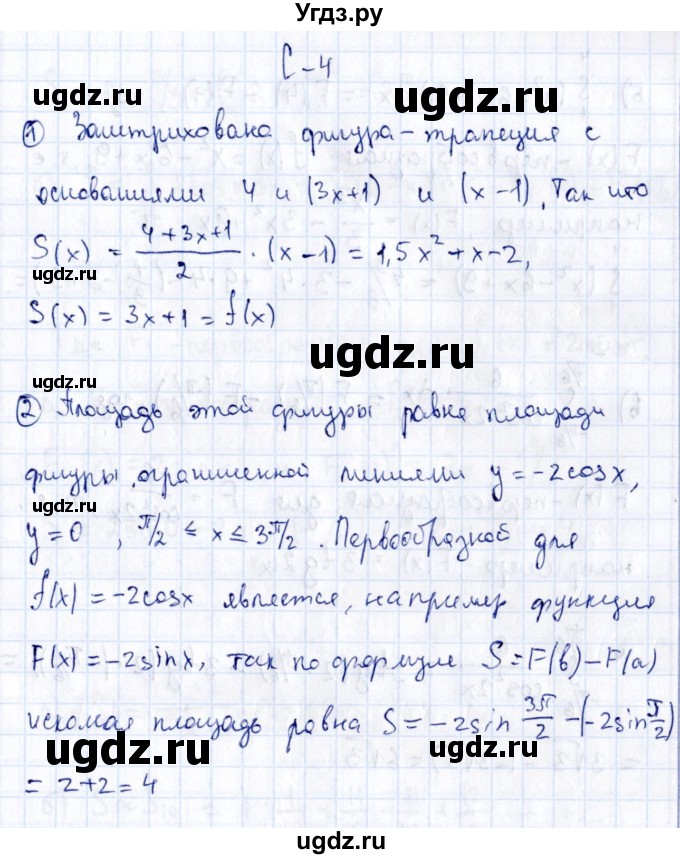 Угдз.ру
С-4
ugdz.ru ugdz.ru
① Заштрихована фигура - трапеция с
ugdz.ru
основаниями 4 и (3x+1) и (x-1). Так что
S(x) = \frac{4+3x+1}{2} · (x-1) = 1,5x² + x - 2,
ugdz.ru
S(x) = 3x+1 = f(x)
ugdz.ru
ugdz.ru
② Площадь этой фигуры равна площади
фигуры, ограниченной линиями y = -2cosx,
ugdz.ru
y = 0, π/2 ≤ x ≤ 3π/2. Первообразной для
ugdz.ru
f(x) = -2cosx является, например функция
F(x) = -2sinx, так по формуле S = F(b) - F(a)
искомая площадь равна S = -2sin\frac{3π}{2} - (-2sin\frac{π}{2})
ugdz.ru ugdz.ru
= 2+2 = 4
ugdz.ru